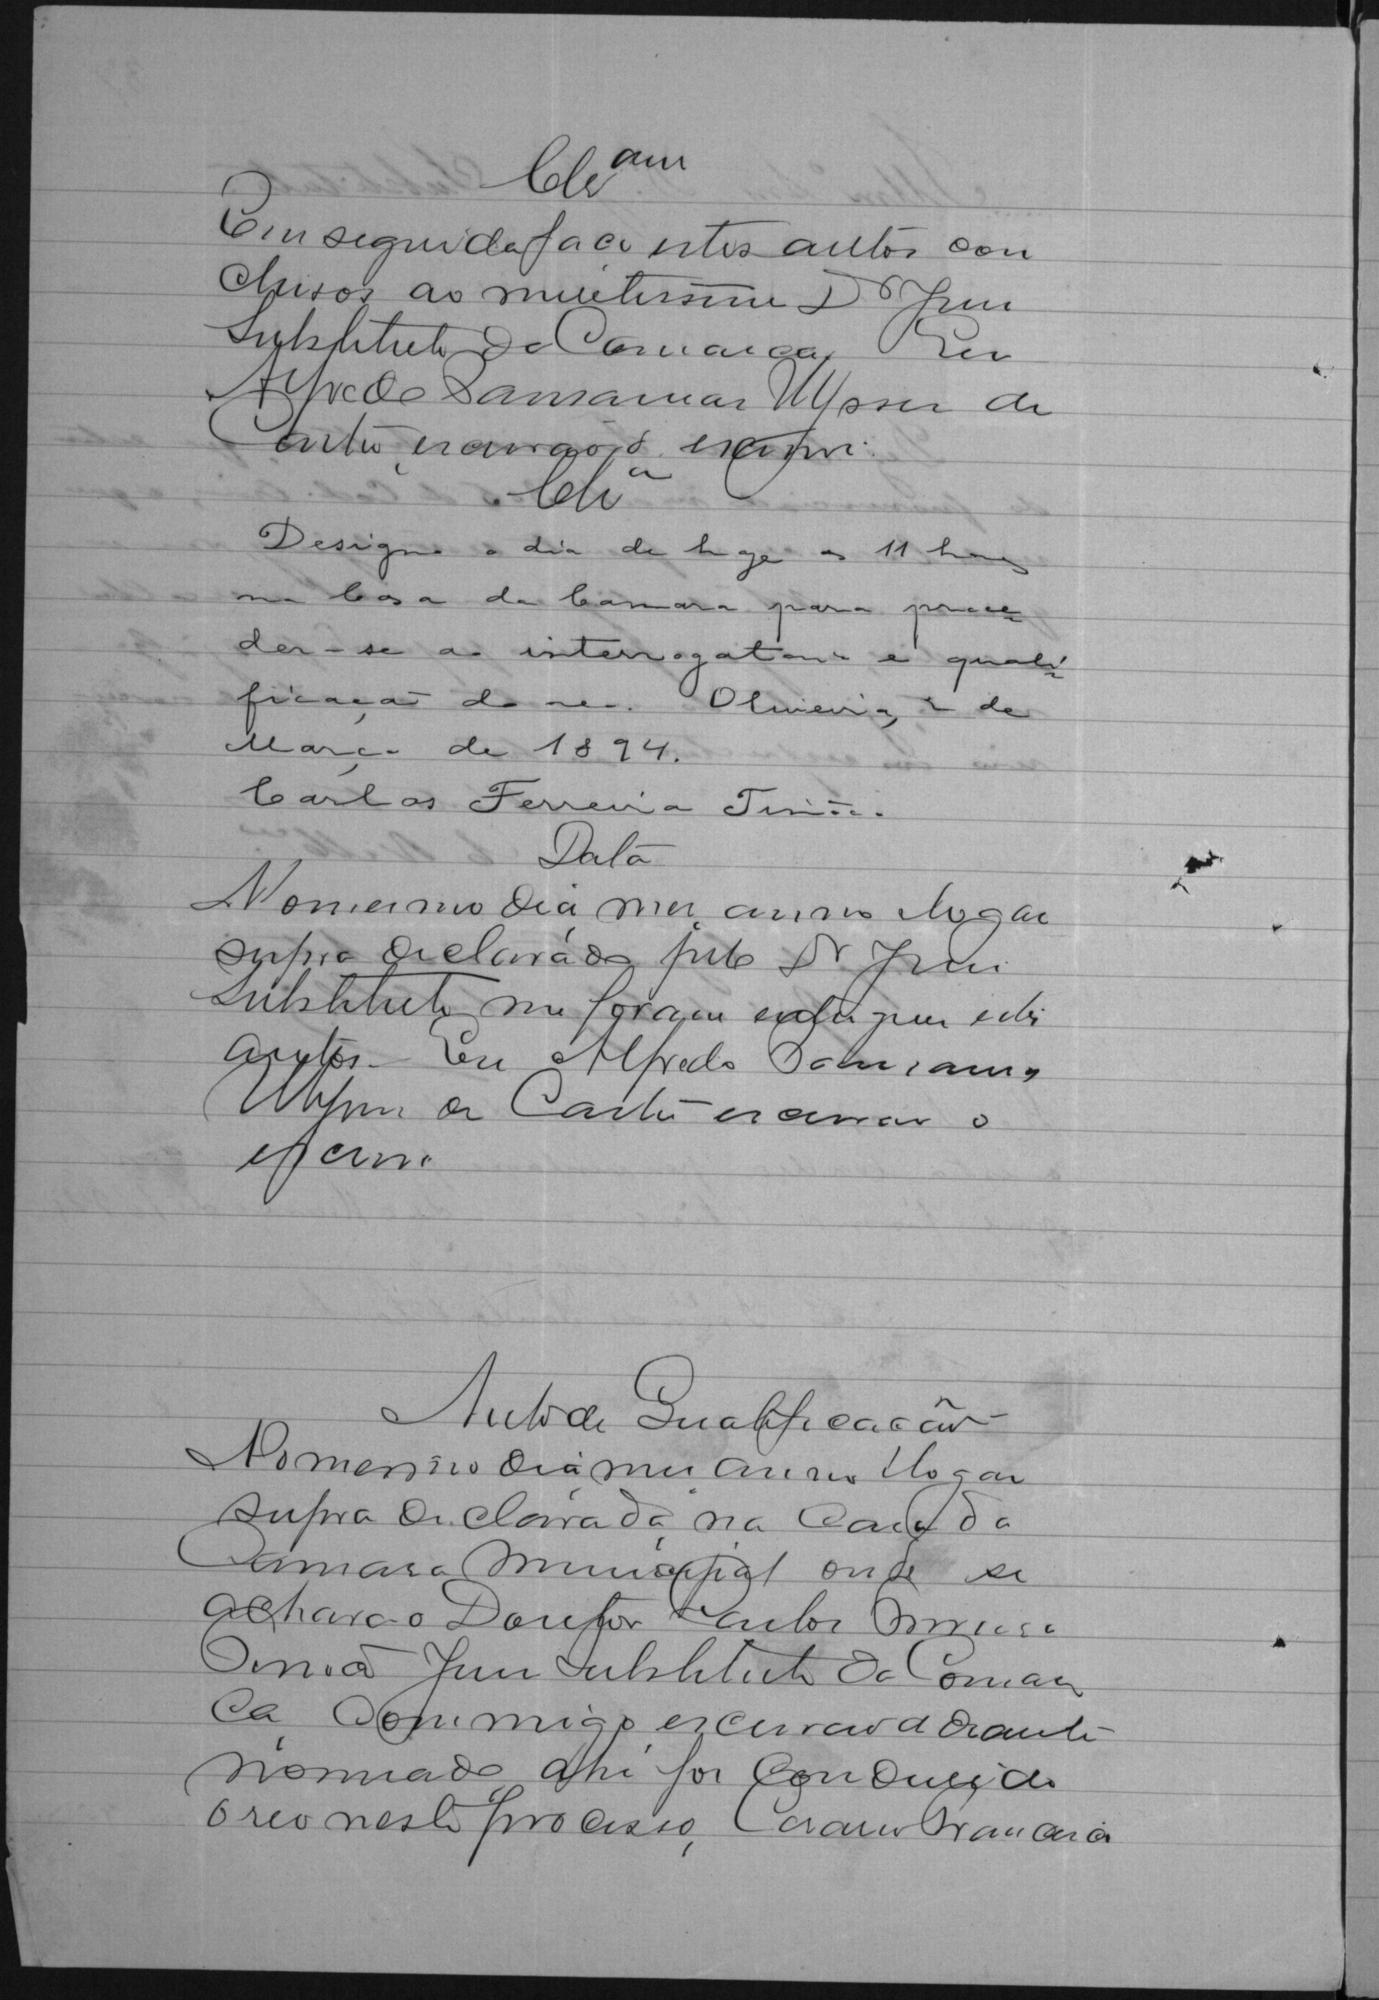 Clsam
Em seguida faço estes autos con
clusos ao meretissimo Dr Juiz
Substituto da Comarca, Eu
Alfredo Ulysses de
Castro, escrivão o escrevi.
Clsa
Designo o dia de hoje as 11 horas
na Casa da Camara para proce-
der-se ao interrogatorio e quali-
ficação do reo. Oliveira, 2 de
Março de 1894.
Carlos Ferreira Tinôco
Data
No mesmo dia, mez, anno e logar
supra declarado pelo Dr Juiz
Substituto me foram entregues estes
autos. Eu Alfredo
Ulysses de Castro escrivão o
escrevi
Auto de Qualificação
No mesmo dia, mez anno e logar
supra declarada, na Casa da
Camara Municipal onde se
achava o Doutor Carlos Ferreira
Juiz Substituto da Comar
ca, Commigo escrivão adeante
nomeado, ahi foi conduzido
o reo neste processo,